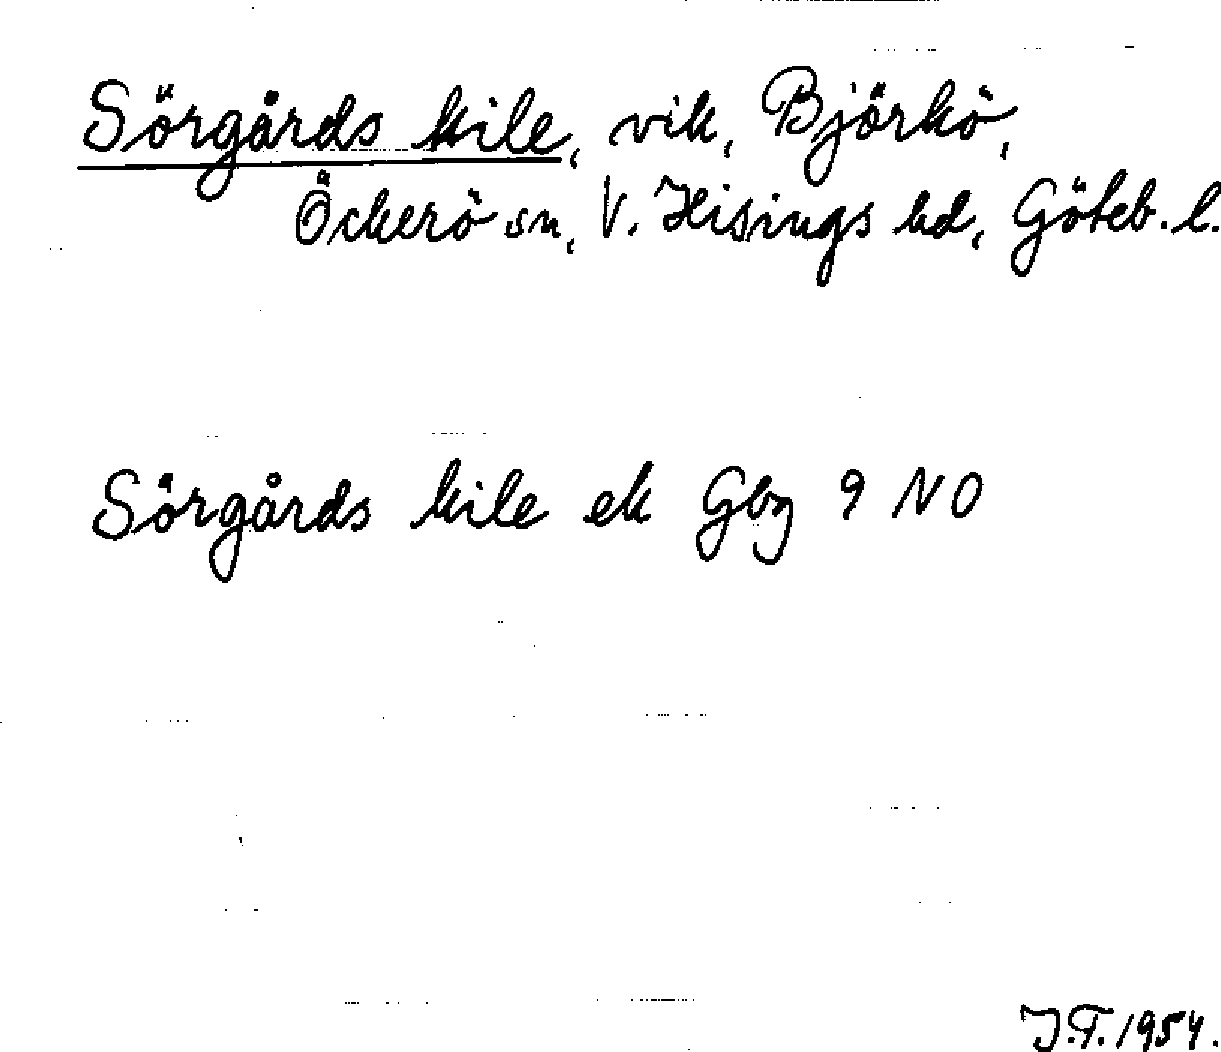 Sörgårds kile, vik, Björkö,
Öckerö sn, V. Hisings hd, Göteb. l.
Sörgårds kile ek Gbg 9 NO
J.T. 1954.